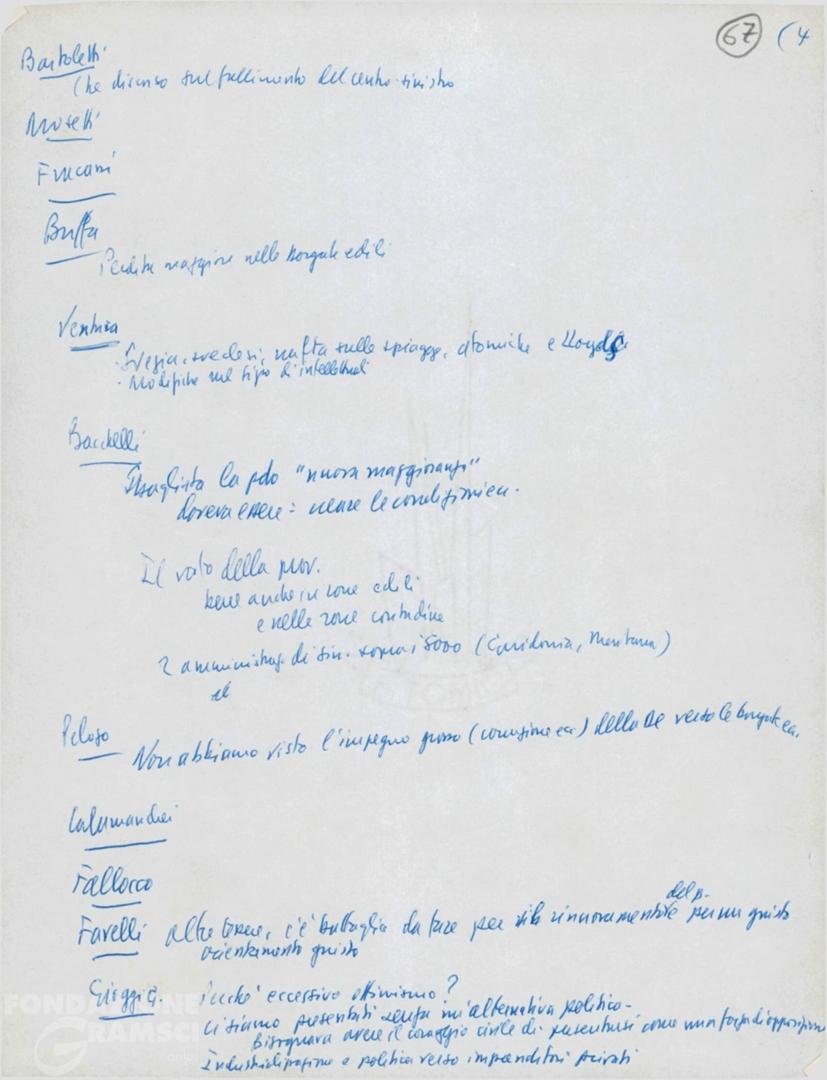 67 (4
Bartoletti
(ha discusso sul fallimento del centro-sinistra
Morelli
Fuscani
Buffa
Perdita maggiore nelle borgate edili
Ventura
svedesi, nafta sulle spiagge, atomiche e
· Modifiche nel tipo di intellettuali
Bacchelli
Sbagliata la pdo "nuova maggioranza"
doveva essere: creare le condizioni ecc.
Il voto della prov.
bene anche in zone edili
e nelle zone contadine
2 amministraz. di sin. sopra i 5000 (Guidonia, Mentana)
Peloso
Non abbiamo visto l'impegno grosso (corruzione ecc) della DC verso le borgate ecc.
Calamandrei
Fallocco
Favelli altre tessere, c'è battaglia da fare per rinnovamento del p. per un giusto
orientamento giusto
Gioggi G. Perché eccessivo ottimismo?
Ci siamo presentati senza un'alternativa politica-
Bisognava avere il coraggio civile di presentarsi come una forza di opposizione
Industrializzazione e politica verso imprenditori privati
FONDAZIONE
GRAMSCI